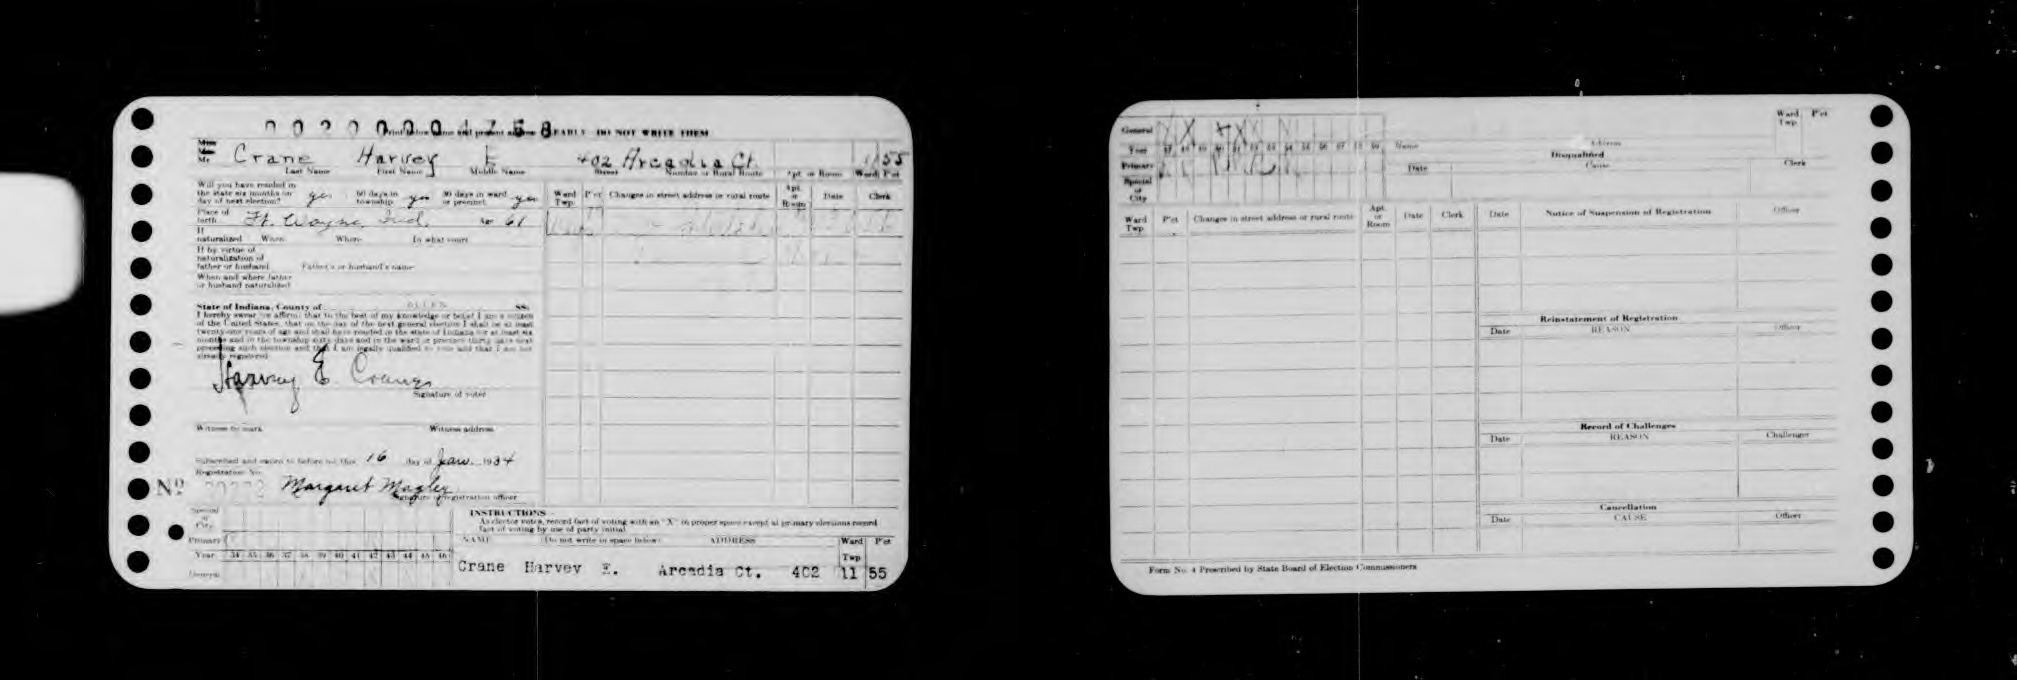 CLEARLY DO NOT WRITE THEM
Mr Crane Harvey E 402 Arcadia Ct. 55
Last Name First Name Middle Name Street Number or Rural Route Apt. or Room Ward P'ct
Will you have resided in
the state six months on
day of next election? yes 60 days in township yes 30 days in ward or precinct yes
Place of birth Ft. Wayne, Ind. 61
If naturalized When Where In what court
If by virtue of
naturalization of
father or husband Father's or husband's name
When and where father
or husband naturalized
Ward Twp. P'ct Changes in street address or rural route Apt. or Room Date Clerk
State of Indiana, County of ALLEN SS:
I hereby swear or affirm that to the best of my knowledge or belief I am a citizen
of the United States, that on the day of the next general election I shall be at least
twenty-one years of age and shall have resided in the state of Indiana for at least six
months and in the township sixty days and in the ward or precinct thirty days next
preceding such election and that I am legally qualified to vote and that I am not
already registered
Harvey E. Crane
Signature of voter
Witness to mark Witness address
Subscribed and sworn to before me this 16 day of Jan. 1934
Registration No.
No Margaret Magley
Signature of registration officer
INSTRUCTIONS
As elector votes, record fact of voting with an "X" in proper space except at primary elections record
fact of voting by use of party initial
Special or City
Primary
Year 34 35 36 37 38 39 40 41 42 43 44 45 46
General
NAME Do not write in space below ADDRESS Ward Twp P'ct
Crane Harvey E. Arcadia Ct. 402 11 55
General
Year
Primary
Special or City
Name Address Ward Twp. P'ct
Disqualified
Date Cause Clerk
Ward Twp P'ct Changes in street address or rural route Apt. or Room Date Clerk
Date Notice of Suspension of Registration Officer
Reinstatement of Registration
Date REASON Officer
Record of Challenges
Date REASON Challenger
Cancellation
Date CAUSE Officer
Form No. 4 Prescribed by State Board of Election Commissioners